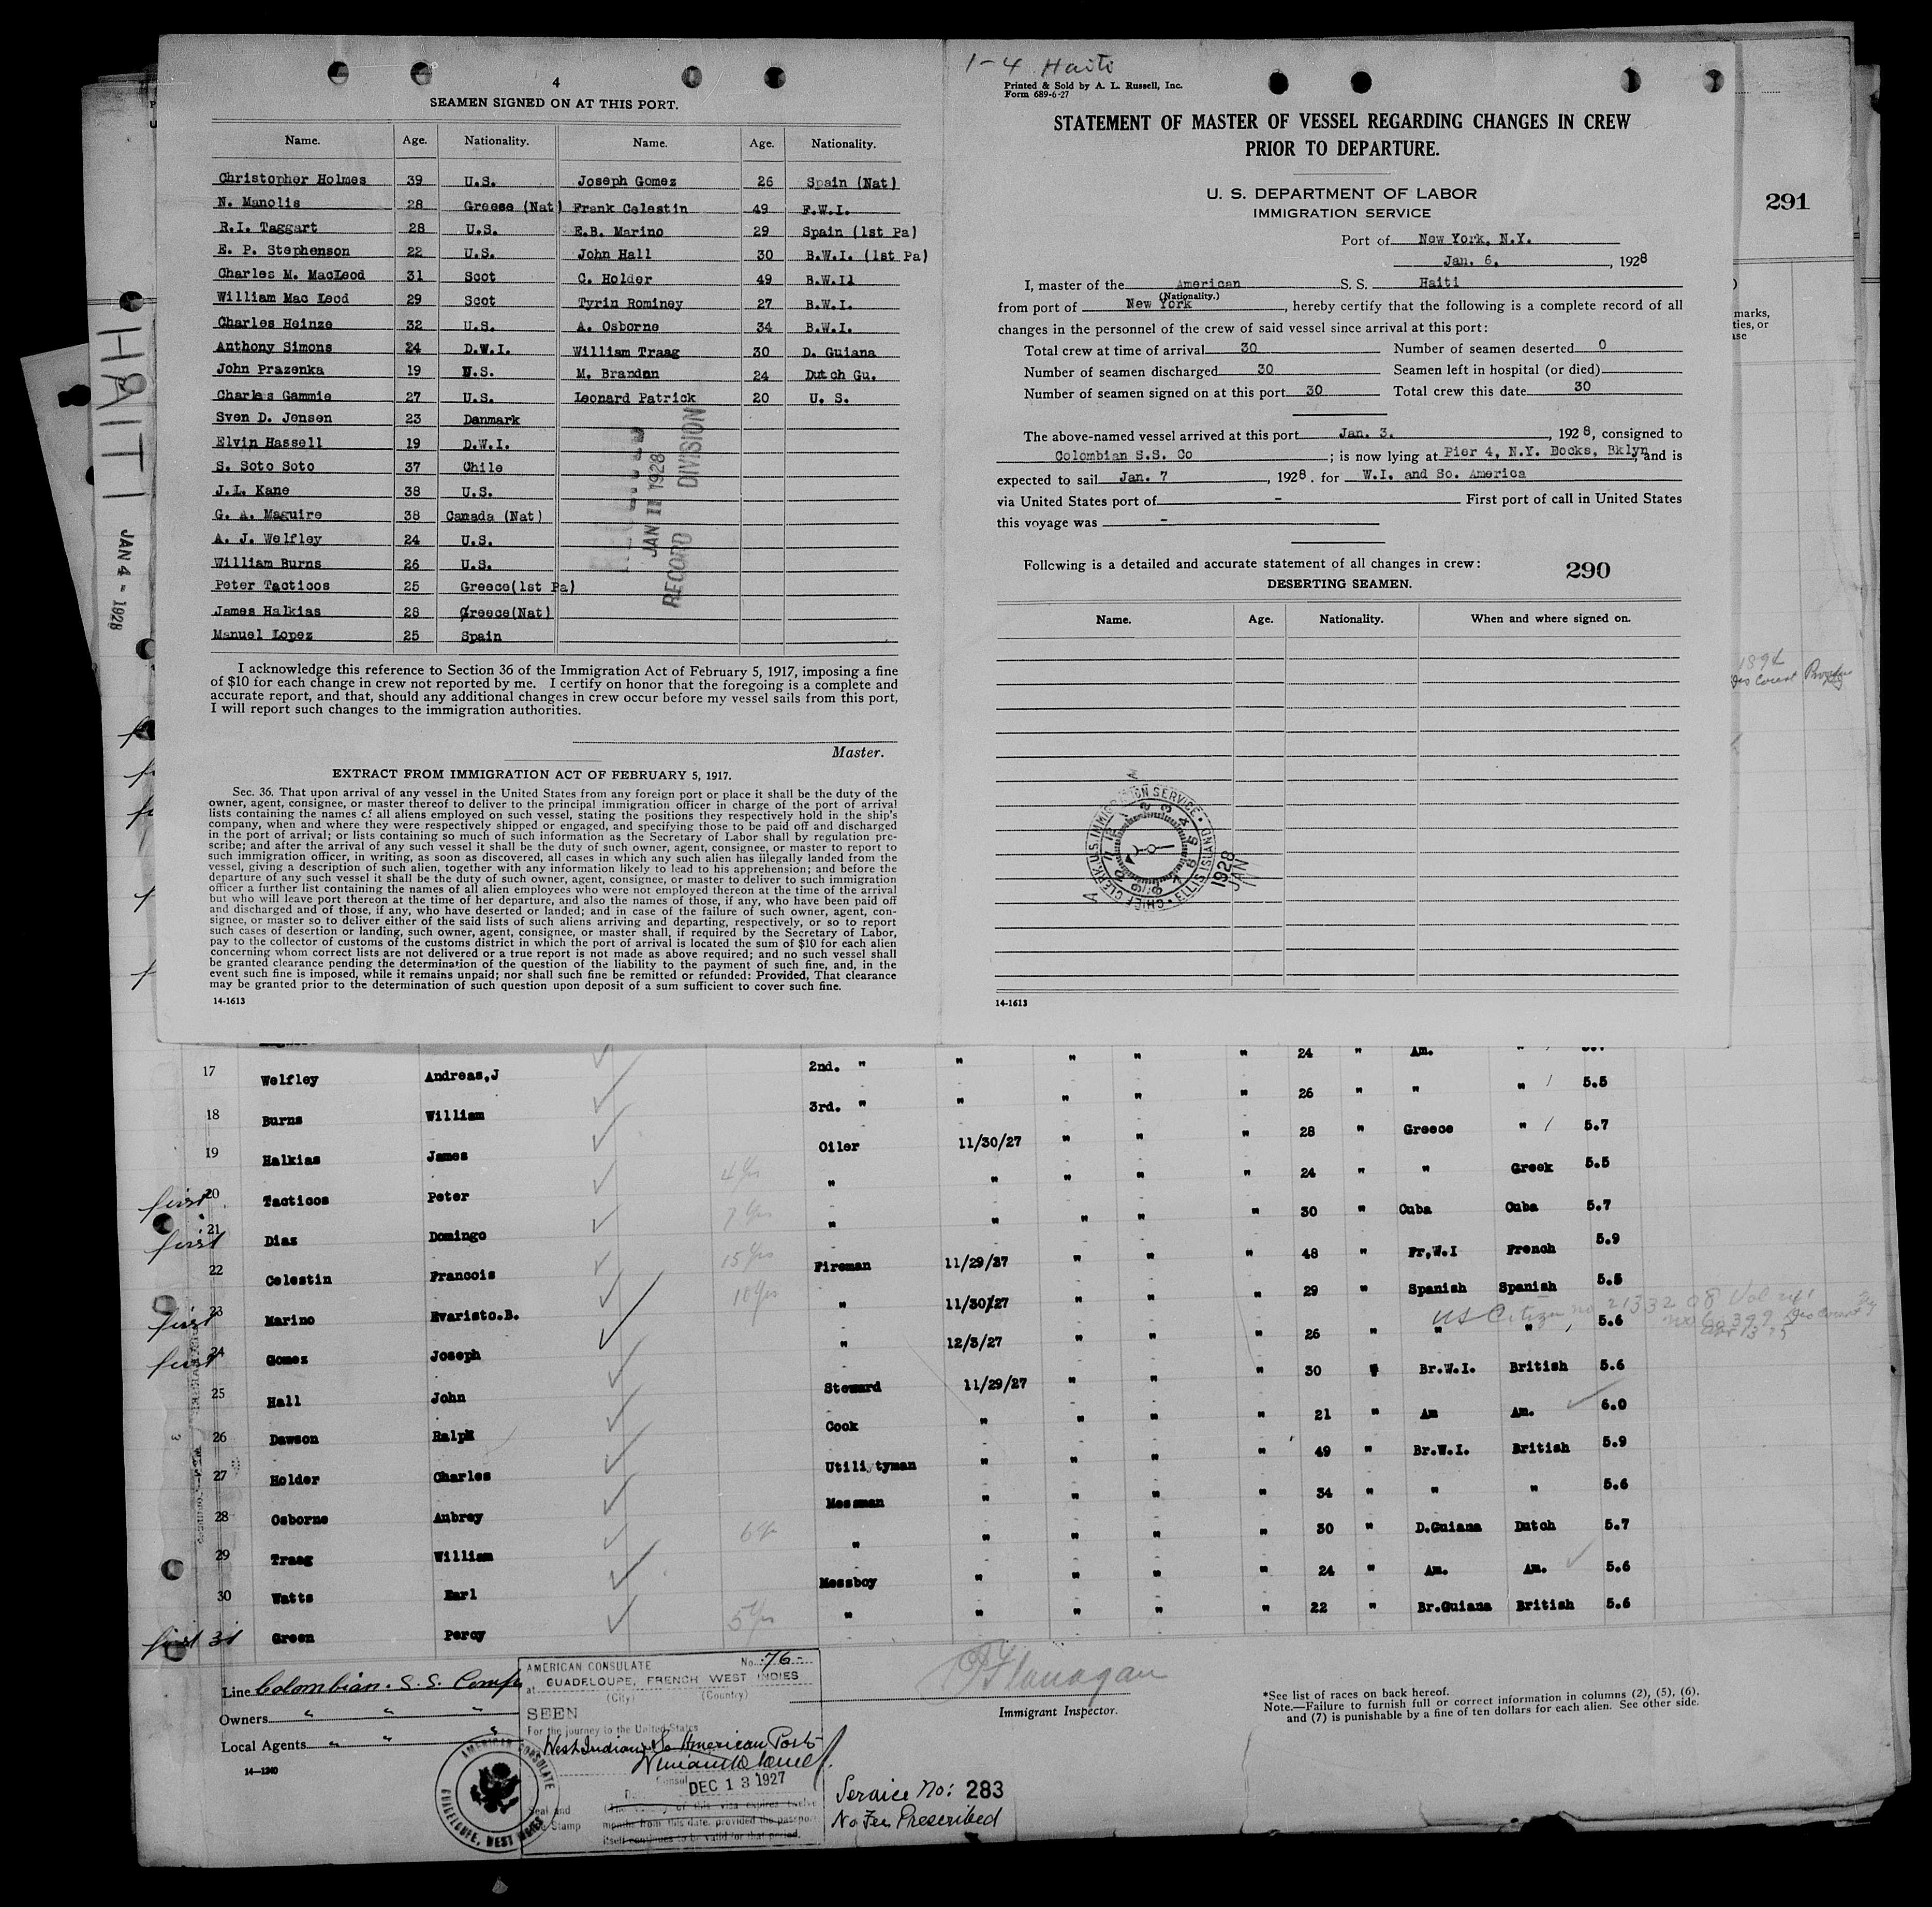 4
SEAMEN SIGNED ON AT THIS PORT.
Name. Age. Nationality. Name. Age. Nationality.
Christopher Holmes 39 U.S. Joseph Gomez 26 Spain (Nat)
N. Manolis 28 Greese (Nat) Frank Celestin 49 F.W.I.
R.I. Taggart 28 U.S. E.B. Marino 29 Spain (1st Pa)
E. P. Stephenson 22 U.S. John Hall 30 B.W.I. (1st Pa)
Charles M. MacLeod 31 Scot C. Holder 49 B.W.I1
William Mac Leod 29 Scot Tyrin Rominey 27 B.W.I.
Charles Heinze 32 U.S. A. Osborne 34 B.W.I.
Anthony Simons 24 D.W.I. William Traag 30 D. Guiana
John Prazenka 19 U.S. M. Brandon 24 Dutch Gu.
Charles Gammie 27 U.S. Leonard Patrick 20 U. S.
Sven D. Jensen 23 Danmark
Elvin Hassell 19 D.W.I.
S. Soto Soto 37 Chile
J.L. Kane 38 U.S.
G. A. Maguire 38 Canada (Nat)
A. J. Welfley 24 U.S.
William Burns 26 U.S.
Peter Tacticos 25 Greece(1st Pa)
James Halkias 28 Greece(Nat)
Manuel Lopez 25 Spain
JAN 11 1928
RECORD DIVISION
I acknowledge this reference to Section 36 of the Immigration Act of February 5, 1917, imposing a fine
of $10 for each change in crew not reported by me. I certify on honor that the foregoing is a complete and
accurate report, and that, should any additional changes in crew occur before my vessel sails from this port,
I will report such changes to the immigration authorities.
Master.
EXTRACT FROM IMMIGRATION ACT OF FEBRUARY 5, 1917.
Sec. 36. That upon arrival of any vessel in the United States from any foreign port or place it shall be the duty of the
owner, agent, consignee, or master thereof to deliver to the principal immigration officer in charge of the port of arrival
lists containing the names of all aliens employed on such vessel, stating the positions they respectively hold in the ship's
company, when and where they were respectively shipped or engaged, and specifying those to be paid off and discharged
in the port of arrival; or lists containing so much of such information as the Secretary of Labor shall by regulation pre-
scribe; and after the arrival of any such vessel it shall be the duty of such owner, agent, consignee, or master to report to
such immigration officer, in writing, as soon as discovered, all cases in which any such alien has illegally landed from the
vessel, giving a description of such alien, together with any information likely to lead to his apprehension; and before the
departure of any such vessel it shall be the duty of such owner, agent, consignee, or master to deliver to such immigration
officer a further list containing the names of all alien employees who were not employed thereon at the time of the arrival
but who will leave port thereon at the time of her departure, and also the names of those, if any, who have been paid off
and discharged and of those, if any, who have deserted or landed; and in case of the failure of such owner, agent, con-
signee, or master so to deliver either of the said lists of such aliens arriving and departing, respectively, or so to report
such cases of desertion or landing, such owner, agent, consignee, or master shall, if required by the Secretary of Labor,
pay to the collector of customs of the customs district in which the port of arrival is located the sum of $10 for each alien
concerning whom correct lists are not delivered or a true report is not made as above required; and no such vessel shall
be granted clearance pending the determination of the question of the liability to the payment of such fine, and, in the
event such fine is imposed, while it remains unpaid; nor shall such fine be remitted or refunded: Provided, That clearance
may be granted prior to the determination of such question upon deposit of a sum sufficient to cover such fine.
14-1613
1-4 Haiti
Printed & Sold by A. L. Russell, Inc.
Form 689-6-27
STATEMENT OF MASTER OF VESSEL REGARDING CHANGES IN CREW
PRIOR TO DEPARTURE.
U. S. DEPARTMENT OF LABOR
IMMIGRATION SERVICE
Port of New York, N.Y.
Jan. 6. , 1928
I, master of the American S. S. Haiti
(Nationality.)
from port of New York , hereby certify that the following is a complete record of all
changes in the personnel of the crew of said vessel since arrival at this port:
Total crew at time of arrival 30 Number of seamen deserted 0
Number of seamen discharged 30 Seamen left in hospital (or died)
Number of seamen signed on at this port 30 Total crew this date 30
The above-named vessel arrived at this port Jan. 3. , 1928, consigned to
Colombian S.S. Co ; is now lying at Pier 4, N.Y. Docks, Bklyn, and is
expected to sail Jan. 7 , 1928. for W.I. and So. America
via United States port of - First port of call in United States
this voyage was -
Following is a detailed and accurate statement of all changes in crew: 290
DESERTING SEAMEN.
Name. Age. Nationality. When and where signed on.
CHIEF CLERK U.S. IMMIGRATION SERVICE ELLIS ISLAND
1928
JAN
14-1613
291
marks,
ties, or
HAITI
JAN 4 - 1928
24 " Am. "
17 Welfley Andreas,J 2nd. " " " " " 26 " " " 5.5
18 Burns William 3rd. " " " " " 28 " Greece " 5.7
19 Halkias James Oiler 11/30/27 " " " 24 " " Greek 5.5
first 20 Tacticos Peter 4 yrs " " " " " 30 " Cuba Cuba 5.7
first 21 Diaz Domingo 7 yrs " " " " " 48 " Fr.W.I French 5.9
22 Celestin Francois 15 yrs Fireman 11/29/27 " " " 29 " Spanish Spanish 5.5
first 23 Marino Evaristo.B. 10 yrs " 11/30/27 " " " 26 " " " 5.6
US Citizen no 2133208 Vol
first 24 Gomez Joseph " 12/3/27 " " " 30 " Br.W.I. British 5.6
25 Hall John Steward 11/29/27 " " " 21 " Am Am. 6.0
26 Dawson Ralph Cook " " " " 49 " Br.W.I. British 5.9
27 Holder Charles Utilityman " " " " 34 " " " 5.6
28 Osborne Aubrey Messman " " " " 30 " D.Guiana Dutch 5.7
29 Traag William 6 yr " " " " " 24 " Am. Am. 5.6
30 Watts Earl Messboy " " " " 22 " Br.Guiana British 5.6
first 31 Green Percy 5 yrs " " " "
Line Colombian. S.S. Comp
Owners " " "
Local Agents " " "
14-1240
AMERICAN CONSULATE No. 76-
at GUADELOUPE, FRENCH WEST INDIES
(City) (Country)
SEEN
For the journey to the United States
West Indian & So American Ports
Consul
DEC 13 1927
Seal and
Stamp
months from this date, provided the passport
itself continues to be valid for that period.
AMERICAN CONSULATE
GUADELOUPE, WEST INDIES
Service No: 283
No Fee Prescribed
Flanagan
Immigrant Inspector.
*See list of races on back hereof.
Note.—Failure to furnish full or correct information in columns (2), (5), (6),
and (7) is punishable by a fine of ten dollars for each alien. See other side.